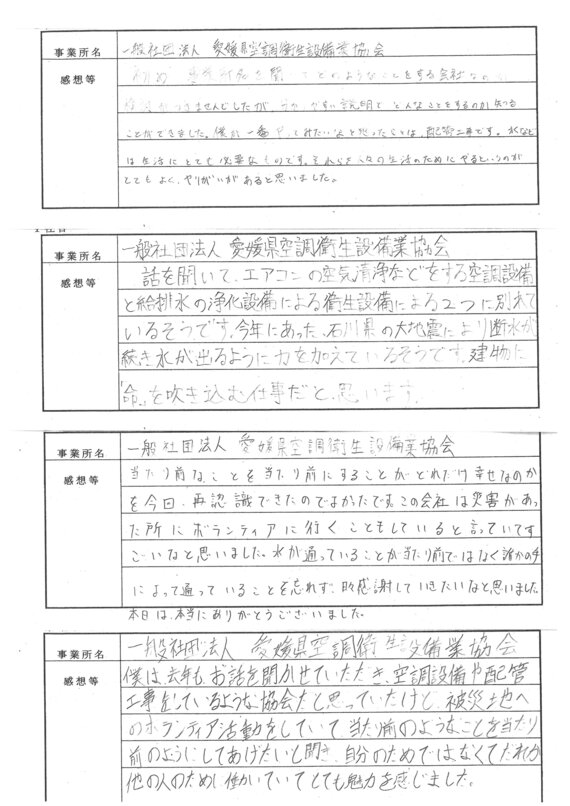 事業所名 一般社団法人 愛媛県空調衛生設備業協会
感想等 初め 聞いて どのようなことをする会社なのか
ませんでしたが、 やすい説明で どんなことをするのか知る
ことができました。僕が一番やってみたいなと思ったのは、配管工事です。水など
は生活にとても必要なものです。それらを人々の生活のためにやるというのが
とてもよく、やりがいがあると思いました。
事業所名 一般社団法人 愛媛県空調衛生設備業協会
感想等 話を聞いて、エアコンの空気清浄などをする空調設備
と給排水の浄化設備による衛生設備による2つに別れて
いるそうです。今年にあった、石川県の大地震により断水が
続き水が出るように力を加えているそうです。建物に
「命」を吹き込む仕事だと、思います。
事業所名 一般社団法人 愛媛県空調衛生設備業協会
感想等 当たり前なことを当たり前にすることがどれだけ幸せなのか
を今回、再認識できたのでよかったです。この会社は災害があっ
た所にボランティアに行くこともしていると言っていてす
ごいなと思いました。水が通っていることが当たり前ではなく誰かの手
によって通っていることを忘れず、日々感謝していきたいなと思いました。
本日は、本当にありがとうございました。
事業所名 一般社団法人 愛媛県空調衛生設備業協会
感想等 僕は、去年もお話を聞かせていただき、空調設備や配管
工事をしているような協会だと思っていたけど、被災土地へ
のボランティア活動をしていて、当たり前のようなことを当たり
前のようにしてあげたいと聞き、自分のためではなくてだれか
他の人のために働いていてとても魅力を感じました。